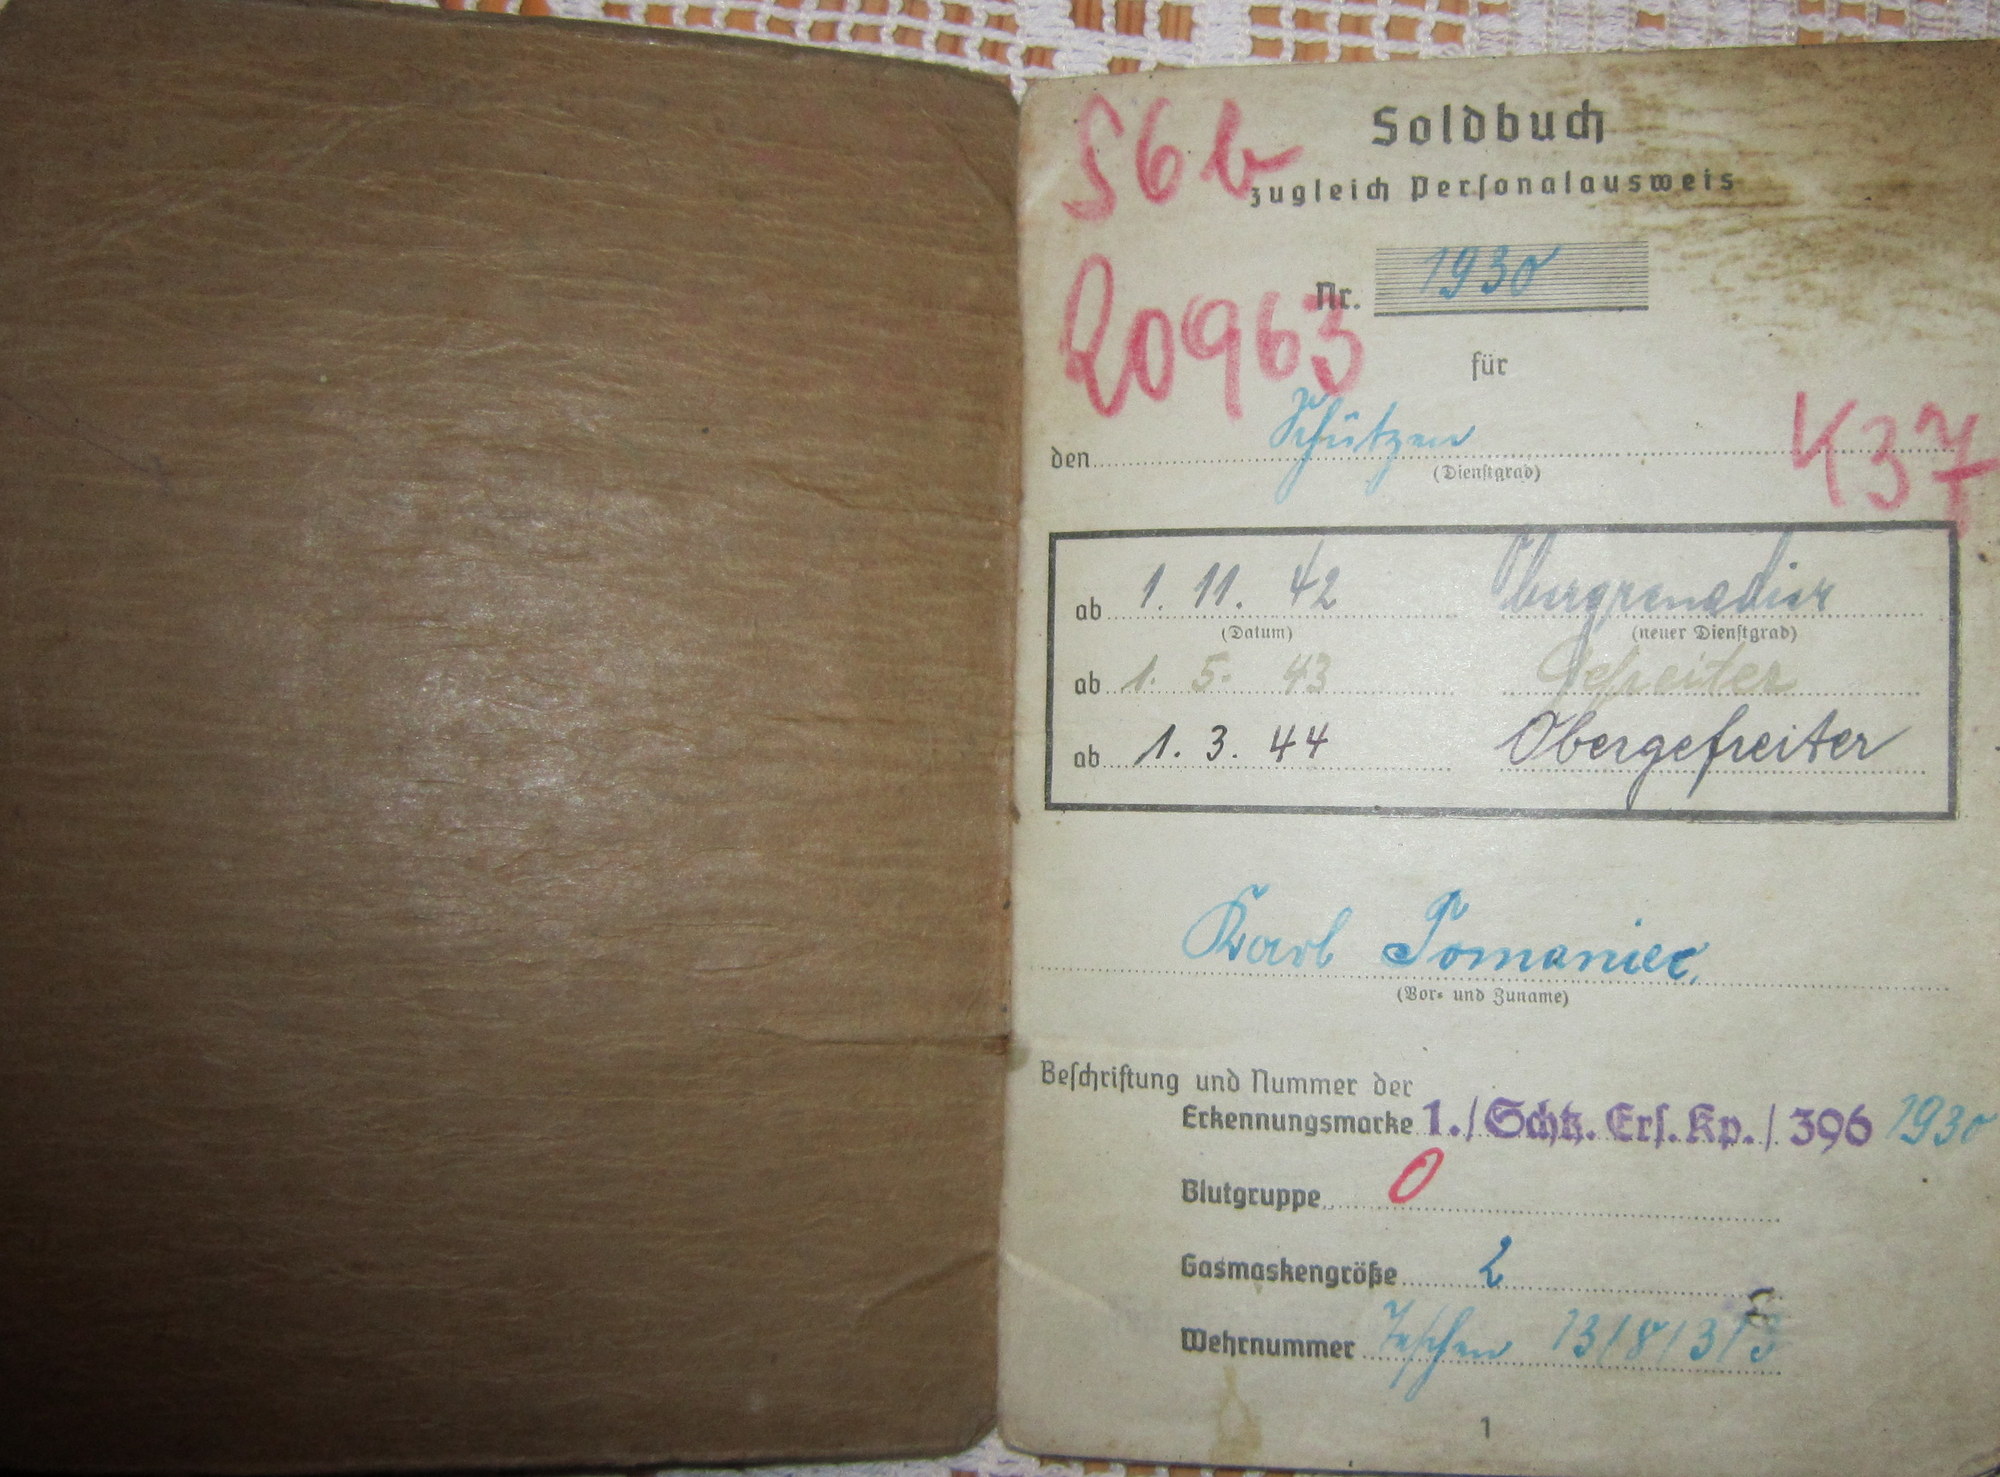 S6b
Soldbuch
zugleich Personalausweis
20963
Nr. 1930
für
den Schützen
K37
(Dienstgrad)
ab 1. 11. 42 Obergrenadier
(Datum) (neuer Dienstgrad)
ab 1. 5. 43 Gefreiter
ab 1. 3. 44 Obergefreiter
Karl Pomaniec
(Vor- und Zuname)
Beschriftung und Nummer der
Erkennungsmarke 1./Schtz. Ers. Kp./396 1930
Blutgruppe 0
Gasmaskengröße 2
Wehrnummer Teschen 13/8/3/3
1